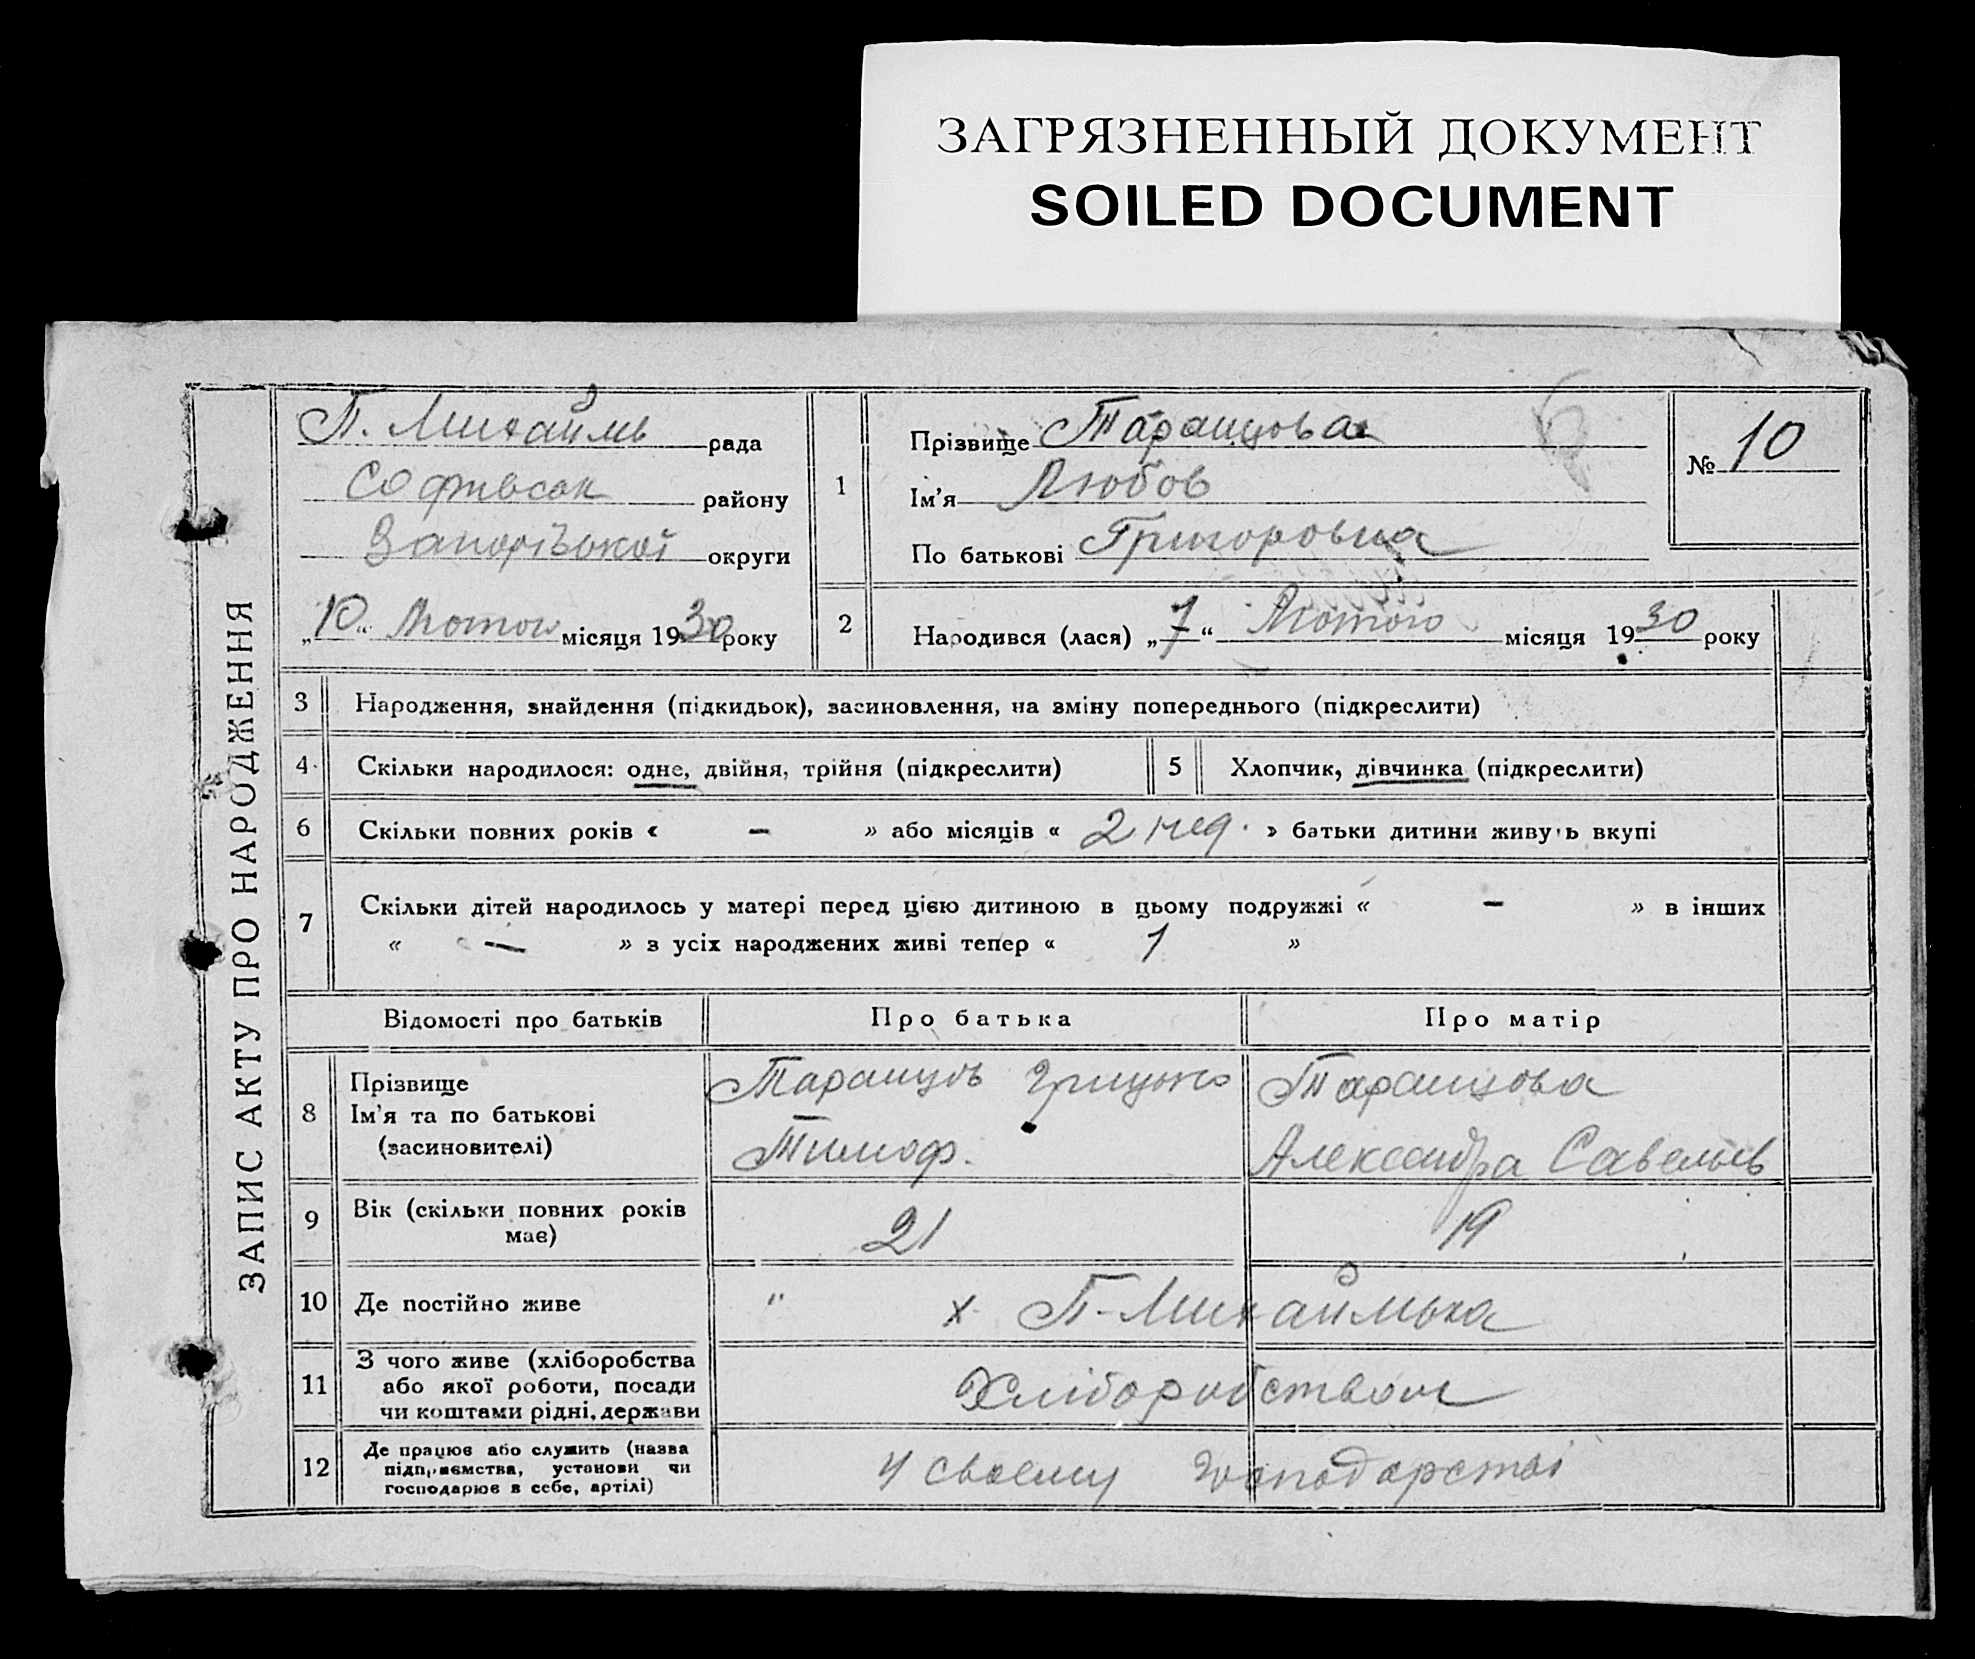 ЗАГРЯЗНЕННЫЙ ДОКУМЕНТ
SOILED DOCUMENT
ЗАПИС АКТУ ПРО НАРОДЖЕННЯ
П. Михайлів рада
Софиевск району
Запорізької округи
„10“ Лютого місяця 1930 року
1
Прізвище Таранцова
Ім’я Любов
По батькові Григоровна
№ 10
2 Народився (лася) „7“ Лютого місяця 1930 року
3 Народження, знайдення (підкидьок), засиновлення, на зміну попереднього (підкреслити)
4 Скільки народилося: одне, двійня, трійня (підкреслити) 5 Хлопчик, дівчинка (підкреслити)
6 Скільки повних років « — » або місяців « 2 нед. » батьки дитини живуть вкупі
7 Скільки дітей народилось у матері перед цією дитиною в цьому подружжі « — » в інших
« — » з усіх народжених живі тепер « 1 »
Відомості про батьків Про батька Про матір
8 Прізвище
Ім’я та по батькові
(засиновителі)
Таранцов Грицько
Тимоф.
Таранцова
Александра Савельев
9 Вік (скільки повних років
має)
21 19
10 Де постійно живе " х П-Михайлівка
11 З чого живе (хліборобства
або якої роботи, посади
чи коштами рідні, держави
Хліборобством
12 Де працює або служить (назва
підприємства, установи чи
господарює в себе, артілі)
У своему господарстві